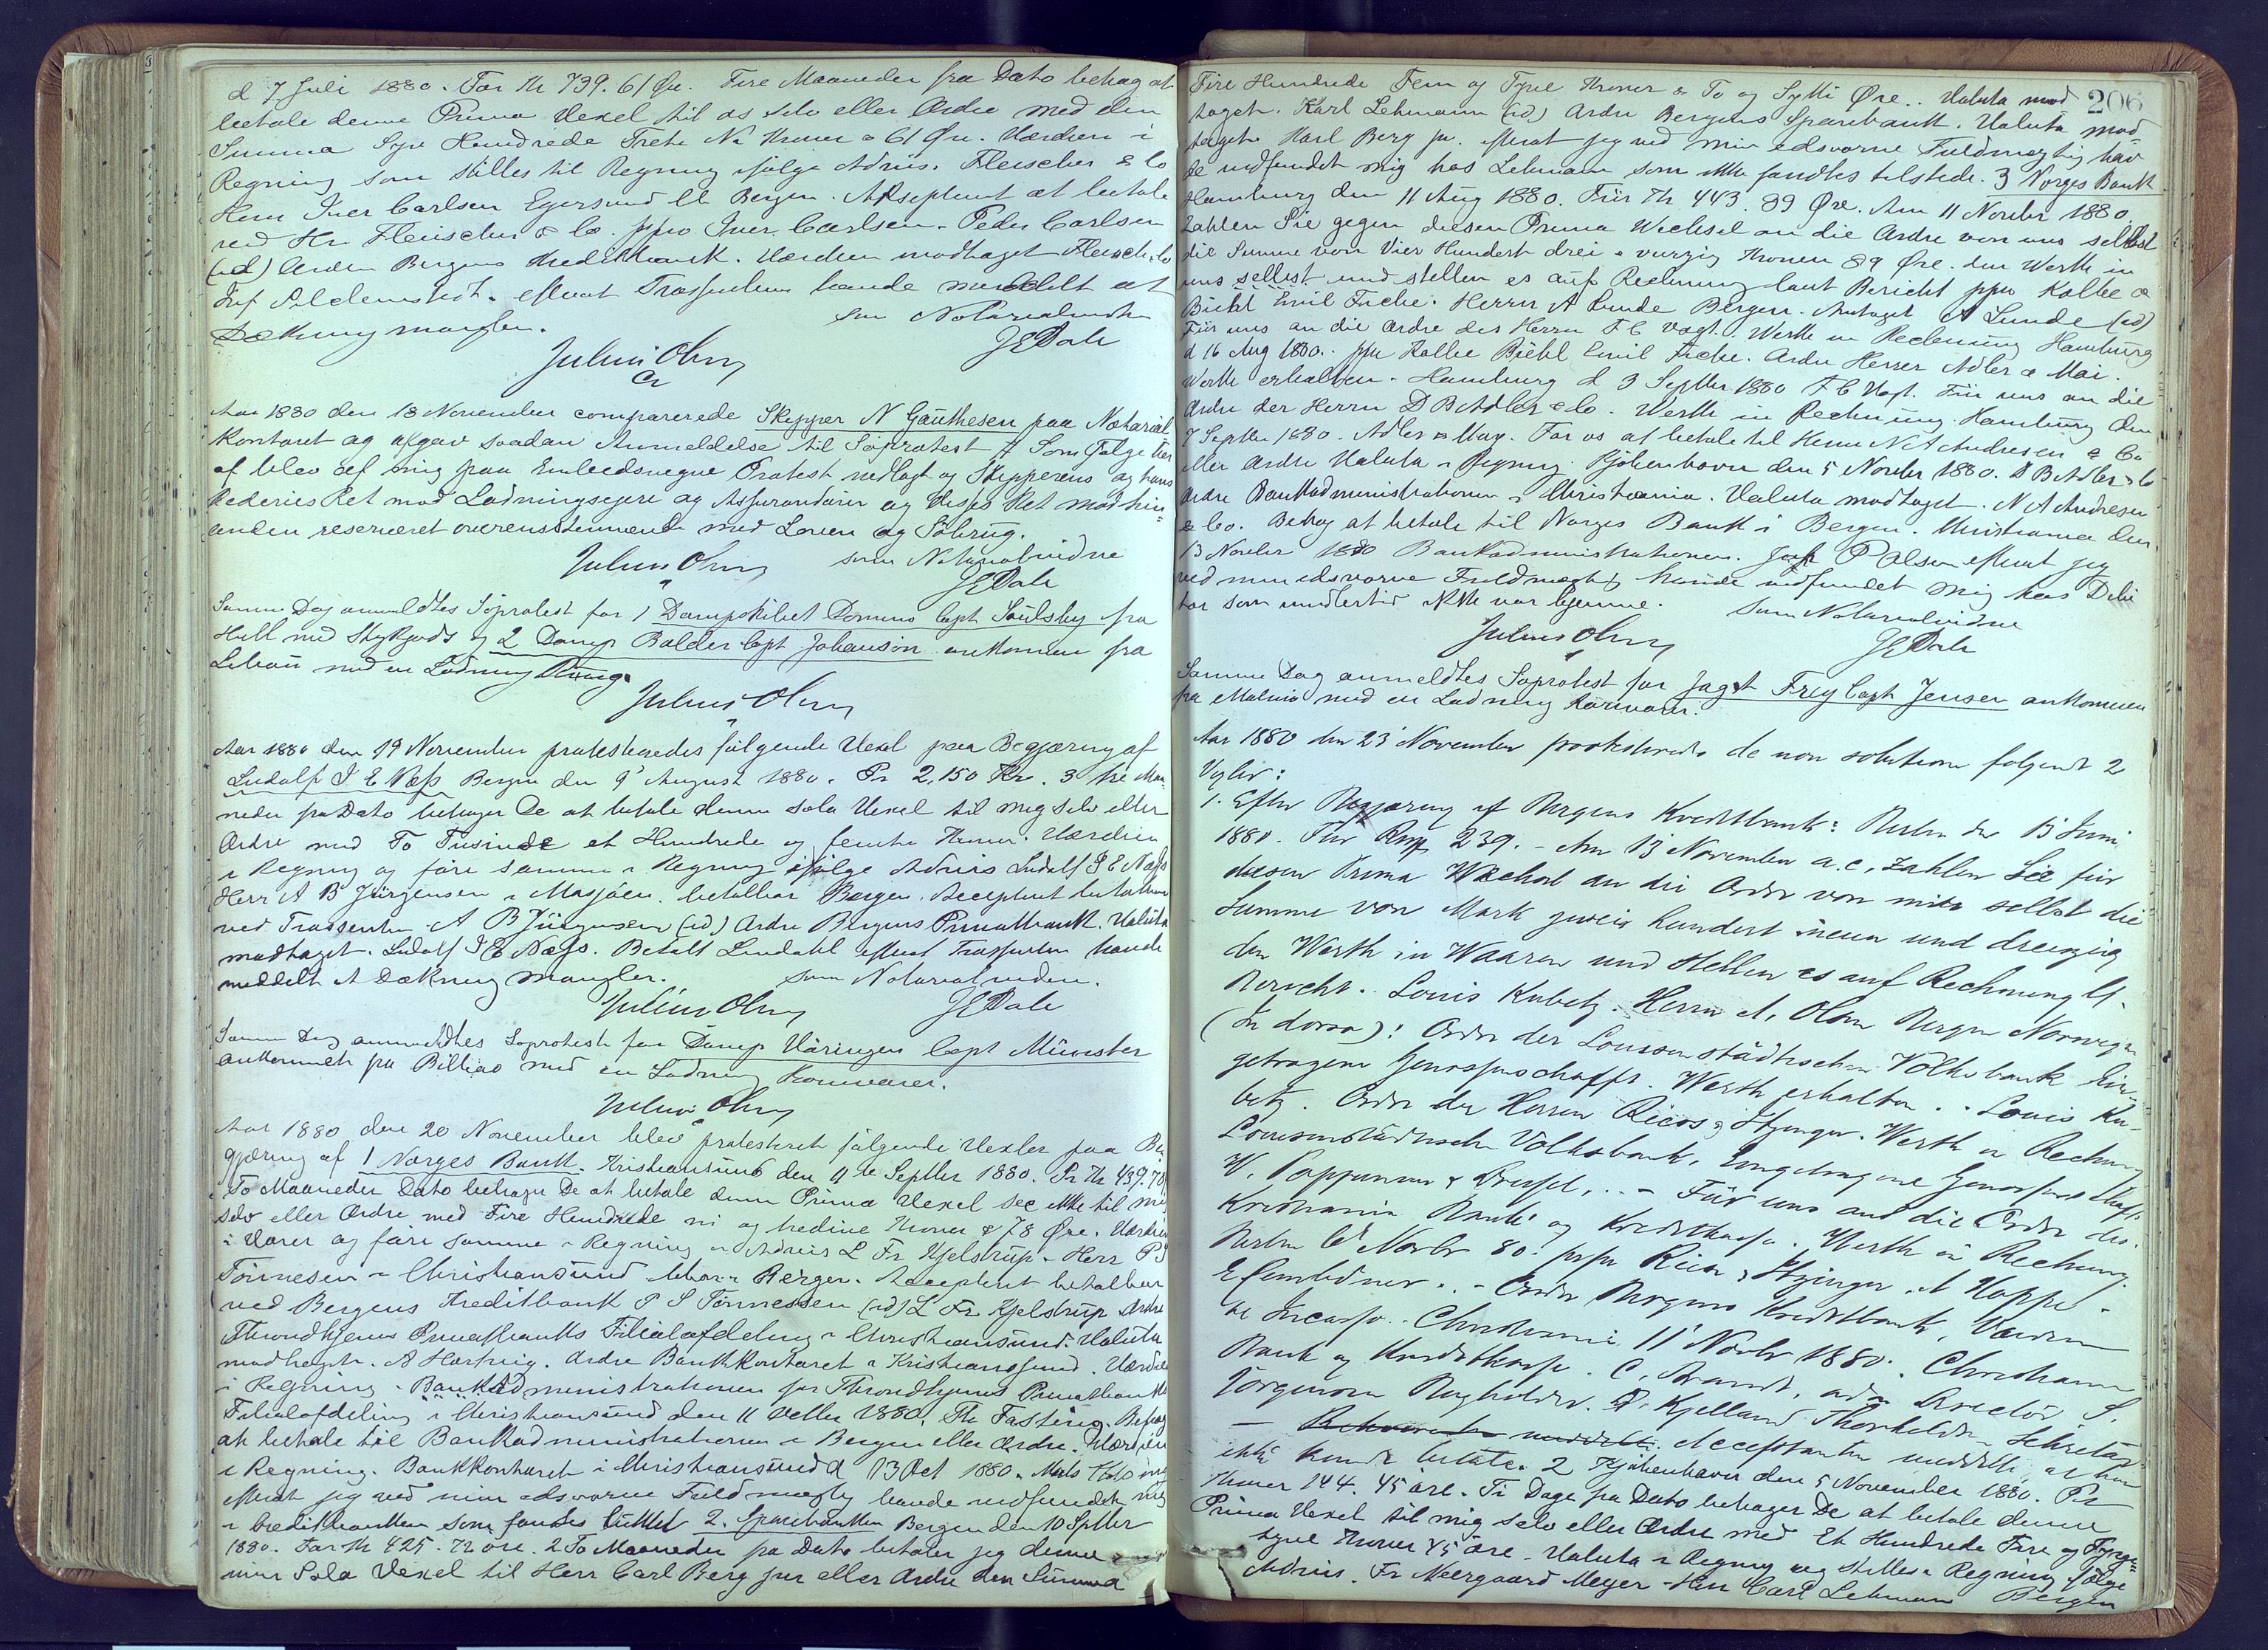 d 7 Juli 1880. For Kr 739. 61 Øre. Fire Maaneder fra Dato behag at
betale denne Prima Vexel til os selv eller Ordre med den
Summa Syv Hundrede Treti Ni Kroner & 61 Øre. Værdien i
Regning som stilles til Regning ifølge Advis. Fleischer & Co
Herr Iver Carlsen Egersund Bergen. Akseptent at betale
ved Hr Fleischer & Co. ppro Iver Carlsen. Peder Carlsen
(id) Orden Bergens Kreditbank. Værdien modtaget Fleisch & Co
efterat Trassenten havde meddelt at
Dækning mangler. som Notarialvidne
Julius Olsen JEDale
Cr
Aar 1880 den 18 November comparerede Skipper N Gauthesen paa Notarial
Kontoret og afgav saadan Anmeldelse til Söprotest Som Følge her
af blev af mig paa Embedsvegne Protest nedlagt og Skipperens og hans
Rederies Ret mod Ladningseiere og Assurandörer og disses Ret mod hin=
anden reserveret overensstemmende med Loven og Söbrug.
Julius Olsen som Notarialvidne
JEDale
Samme Dag anmeldtes Söprotest for 1 Dampskibet Domino Capt Soulsby fra
Hull med Stykgods og 2 Damp Balder Capt Johanson ankommen fra
Libau med en Ladning Rüng.
Julius Olsen
Aar 1880 den 19 November protesteredes følgende Vexel paa Begjæring af
Ludolf I E Næss Bergen den 9 August 1880. Pr 2,150 Kr. 3 tre Maa
neder fra Dato behager De at betale denne sola Vexel til mig selv eller
Ordre med To Tusinde et Hundrede og femti Kroner. Værdien
i Regning og före samme i Regning ifølge Advis Ludolf I E Næss
Herr A B Jürgensen i Mosjöen betalbar Bergen. Acceptent betalbar
ved Trassenten A B Jürgensen (id) Ordre Bergens Privatbank. Valuta
modtaget. Ludolf I E Næss. Betalt Lindahl efterat Trassenten havde
meddelt at Dækning mangler. som Notarialvidne.
Julius Olsen JEDale
Samme Dag anmeldtes Soprotest for Damp Væringen Capt Münster
ankommen fra Bilbao med en Ladning Kornvarer.
Julius Olsen
Aar 1880 den 20 November blev protesteret følgende Vexler paa Be
gjæring af 1 Norges Bank. Kristiansund den 11te Septbr 1880. Pr Kr 439.78
To Maaneder Dato behager De at betale denne Prima Vexel sec ikke til mig
selv eller Ordre med Fire Hundrede ni og tredive Kroner & 78 Øre. Værdien
i Varer og före samme i Regning Advis L Fr Kjelstrup. Herr P S
Tönnesen i Christiansund Bergen. Acceptent betalbar
ved Bergens Kreditbank P S Tönnessen (id) L Fr Kjelstrup Ordre
Throndhjems Privatbanks Filialafdeling i Christiansund. Valuta
modtaget. Ordre Bankkontoret i Kristianssund. Værdi
i Regning. Bankadministrationen for Throndhjems Privatbanks
Filialafdeling i Christiansund den 11 1880, Th Fasting. Behag
at betale til Bankadministrationen i Bergen eller Ordre. Værdien
i Regning. Bankkontoret i Christiansund d 13 Oct 1880.
efterat jeg ved min edsvorne Fuldmægtig havde indfundet mig
i Creditbanken som fandtes lukket 2. Sparebanken Bergen den 10 Septbr
1880. For Kr 425. 72 øre. 2 To Maaneder fra Dato betaler jeg denne
min Sola Vexel til Herr Carl Berg jun eller Ordre den Summa
206
Fire Hundrede Fem og Tyve Kroner & To og Sytti Øre.. Valuta mod
taget. Karl Lehmann (id) Ordre Bergens Sparebank. Valuta mod
taget Karl Berg jr. efterat jeg ved min edsvorne Fuldmægtig hav
de indfundet mig hos Lehmann som ikke fandtes tilstede. 3 Norges Bank
Hamburg den 11 Aug 1880. Für Kr. 443. 89 Øre. Am 11 Novbr 1880.
Zahlen Sie gegen diesen Prima Wechsel an die Ordre von uns selbst
die Summe von Vier Hundert drei & vierzig Kronen 89 Øre. den Werth in
uns selbst und stellen es auf Rechnung laut Bericht ppa Kolbe &
Biehl Emil Fiche. Herrn A Lunde Bergen. Antaget A Lunde (id)
Für uns an die Ordre des Herrn F C Vogt. Werth in Rechnung Hamburg
d 16 Aug 1880. ppa Kolbe Biehl Emil Fiche. Ordre Herrer Adler & Mai.
Werth erhalten. Hamburg d 3 Septbr 1880 F C Vogt. Für uns an die
Ordre der Herrn D B Adler & Co. Werth in Rechnung Hamburg den
7 Septbr 1880. Adler & May. For os at betale til Herrn N A Andresen & Co
eller Ordre Valuta i Regning. Kjöbenhavn den 5 Novbr 1880. D B Adler & Co
Ordre Bankadministrationen i Christiania. Valuta modtaget. N A Andresen
& Co. Behag at betale til Norges Bank i Bergen. Christiania den
13 Novbr 1880 Bankadministrationen. P Olsen efterat jeg
ved min edsvorne Fuldmægtig havde indfundet mig hos Debi
tor som imidlertid ikke var hjemme. som Notarialvidne
Julius Olsen JEDale
Samme Dag anmeldtes Soprotest for Jagt Frey Capt Jensen ankommen
fra Malmö med en Ladning Kornvarer.
Aar 1880 den 23 November protesteredes de non solution følgende 2
Vexler:
1. Efter Begjæring af Bergens Kreditbank: Berlin den 13 Juni
1880. Für Rm 239. - Am 13 November a.c. zahlen Sie für
diesen Prima Wechsel an die Ordre von mir selbst die
Summe von Mark zwei hundert neun und dreizig
den Werth in Waaren und stellen es auf Rechnung lt.
Bericht. Louis Kubetz. Herrn A. Olsen Bergen Norwegen
(In dorso): Ordre der Louisenstädtischen Volksbank Ein-
getragene Genossenschafft. Werth erhalten. - Louis Ku-
betz. Ordre der Herren Riess & Itzinger. Werth in Rechnung
Louisenstädtische Volksbank, Eingetragene Genossenschaft
W. Pappenm & Dressel, .. - Für uns and die Ordre der
Kristiania Bank og Kreditkasse. Werth in Rechnung.
Berlin 6 Novbr 80. ppa Riess & Itzinger A Hoppe -
- Ordre Bergens Kreditbank. Værdien
til Incasso. Christiania 11 Novbr 1880. Christiania
Bank og Kreditkasse. C, Arandt, adm Direktör S.
Jörgensen Bogholder. D. Kjelland Thorkeldsen Sekretær
— Rekvirenten meddelte. Acceptanten meddelte, at han
ikke kunde betale. 2 Kjöbenhavn den 5 November 1880. Pr
Kroner 144. 45 øre. Ti Dage fra Dato behager De at betale denne
Prima Vexel til mig selv eller Ordre med Et Hundrede Fire og Fyrge=
tyve Kroner 45 øre - Valuta i Regning og stilles i Regning ifølge
Advis. Fr Neergaard Meyer - Herr Carl Lehmann Bergen